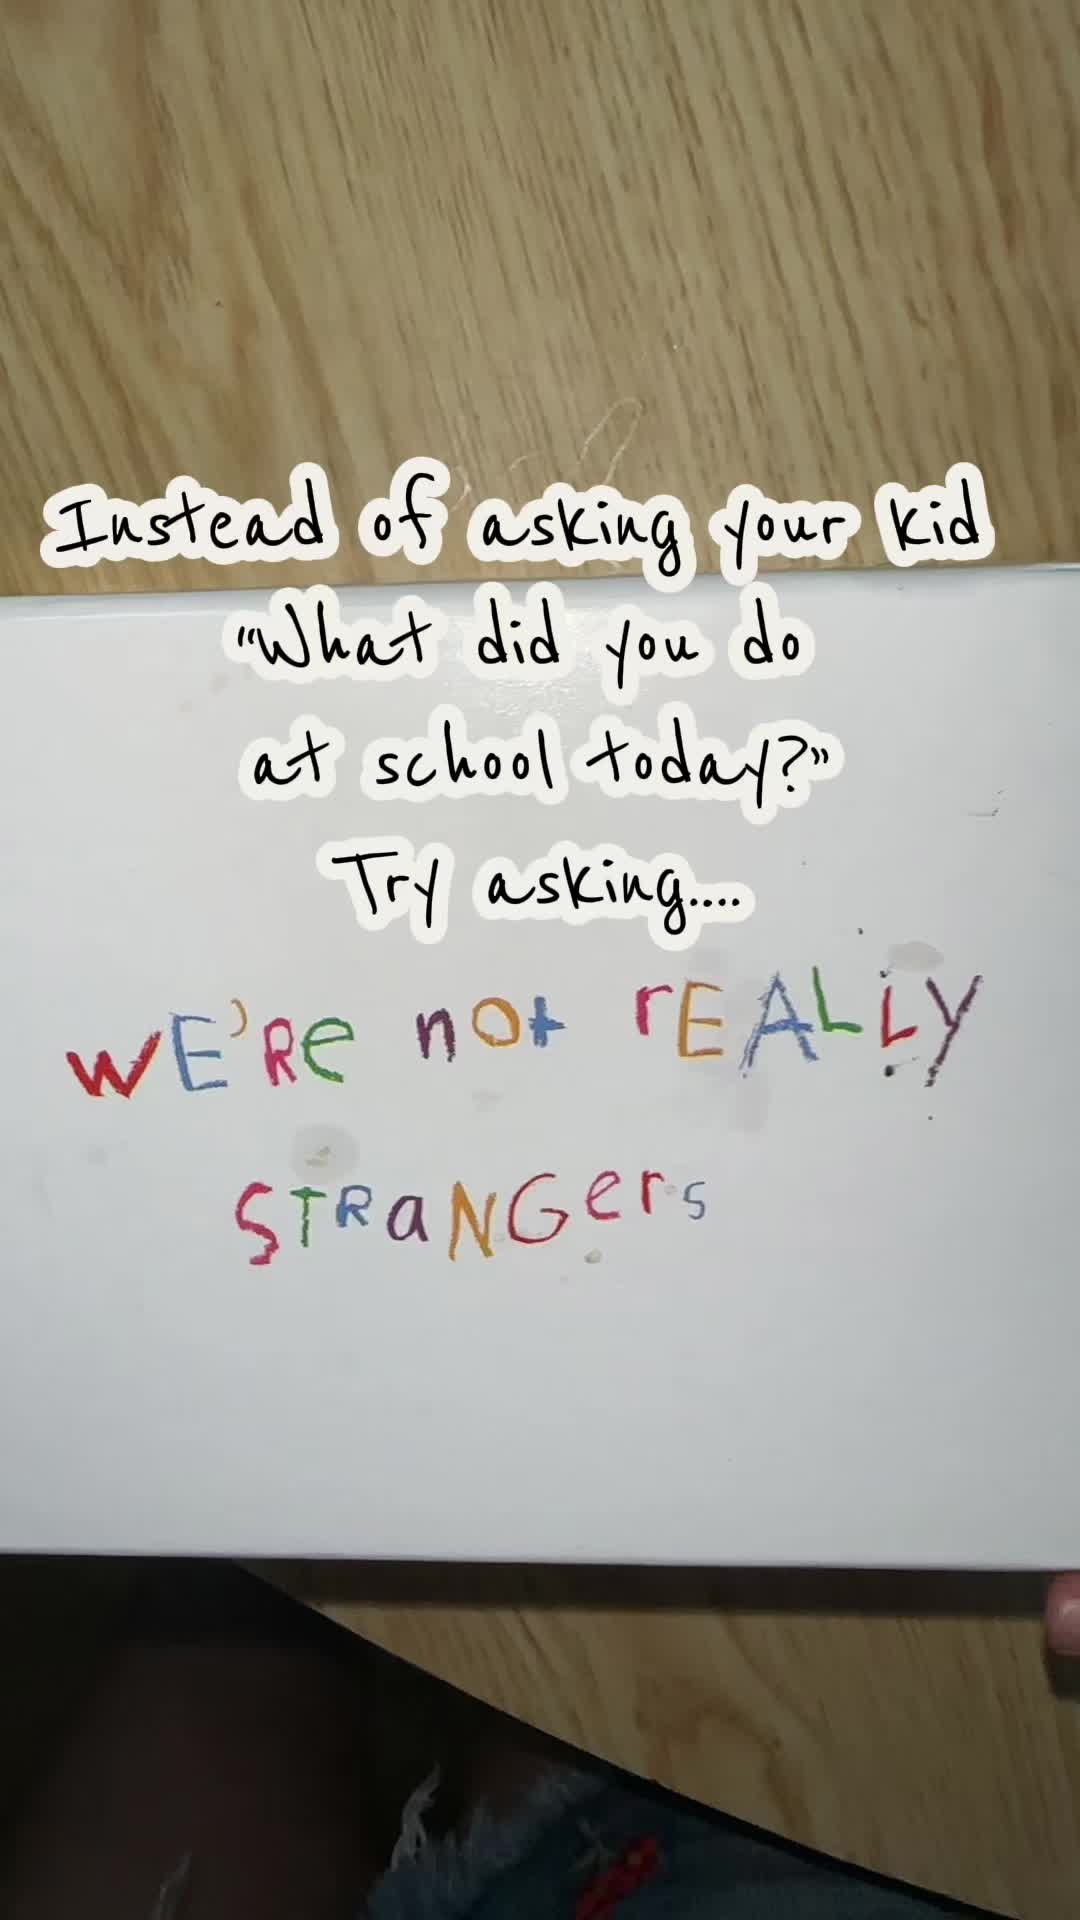 Instead of asking your kid
"What did you do
at school today?"
Try asking....
WE'Re not rEALLY
STRaNGers